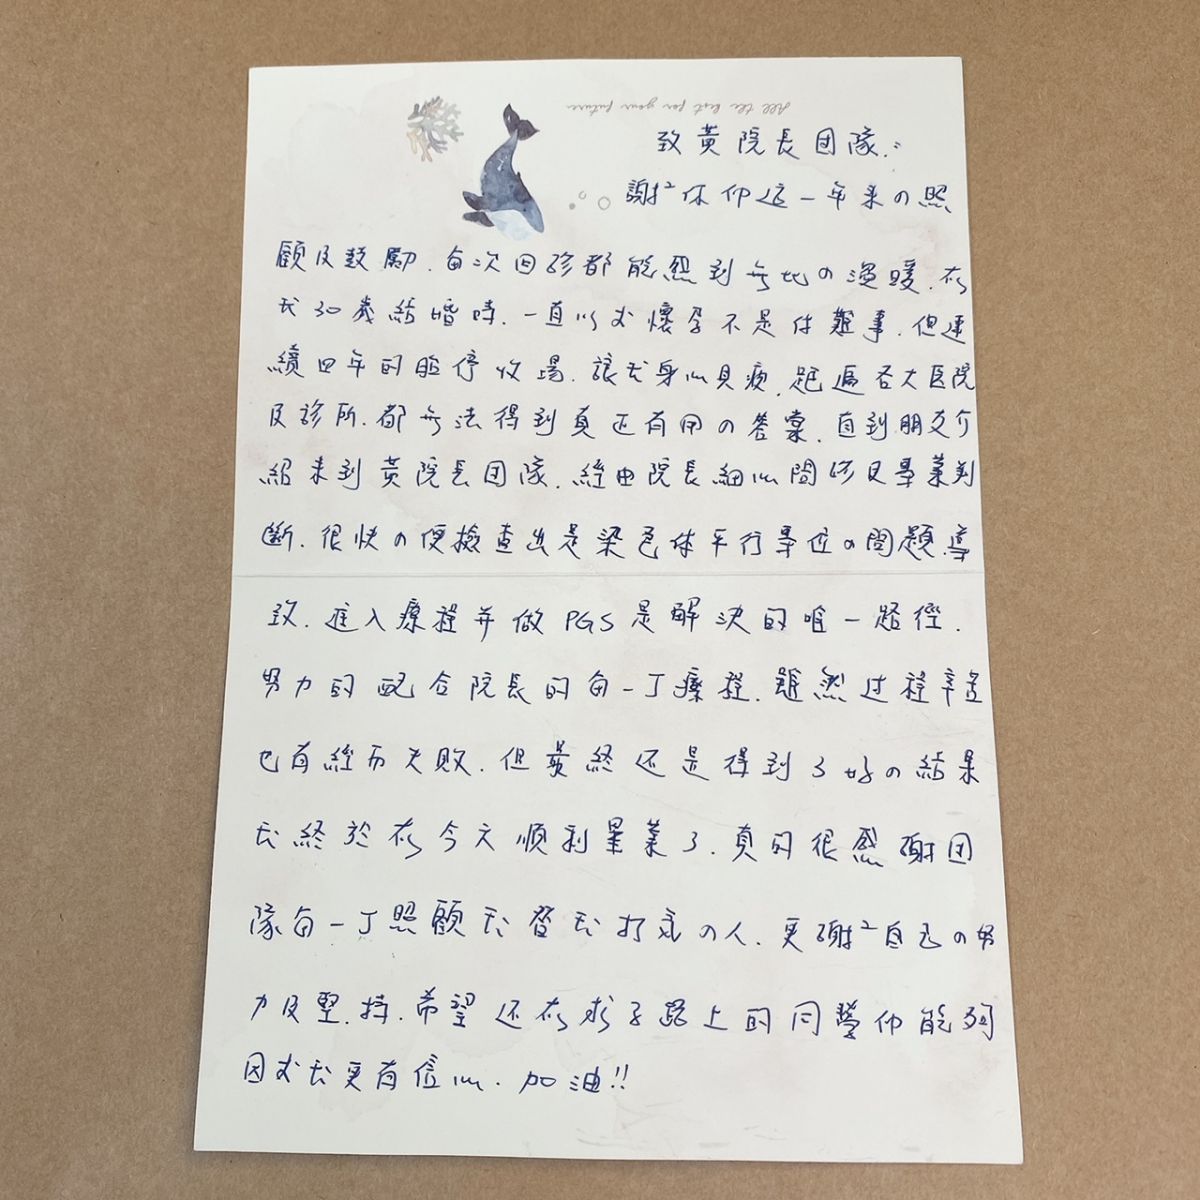 All the best for your future
致黃院長团隊:
謝²你们這一年来の照
顧及鼓勵.每次回診都能感到無比の溫暖.在
我30歲結婚時.一直以为懷孕不是件難事.但連
續四年的胎停收場.讓我身心具疲.跑遍各大医院
及診所.都無法得到真正有用の答案.直到朋友介
紹来到黃院長团隊.經由院長細心問診及專業判
斷.很快の便檢查出是染色体平行易位の問題.導
致.進入療程并做PGS是解決的唯一路徑.
努力的配合院長的每一个療程.雖然过程辛苦
也有經历失敗.但最終还是得到了好の結果
我終於在今天順利畢業了.真的很感謝团
隊每一个照顧我替我打氣の人.更謝²自己の努
力及堅持.希望还在求子路上的同學们能夠
因为我更有信心.加油!!